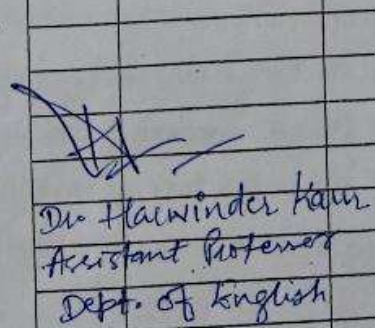 Dr. Harwinder Kaur
Assistant Professor
Dept. of English